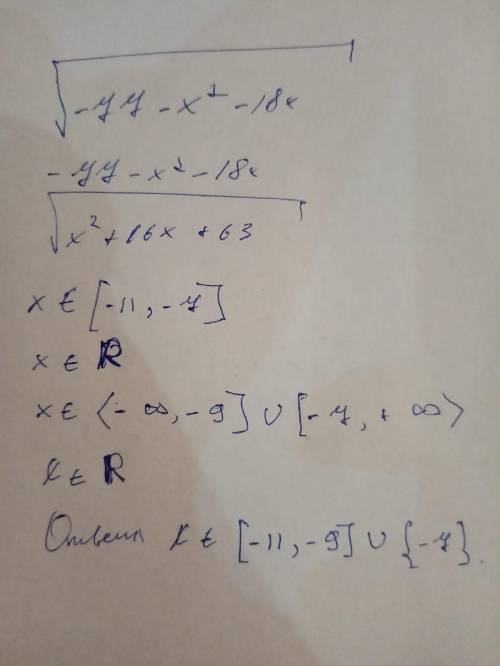 √(-77 - x² - 18x)
-77 - x² - 18x
√(x² + 16x + 63)
x ∈ [-11, -7]
x ∈ R
x ∈ ⟨-∞, -9] ∪ [-7, +∞⟩
x ∈ R
Ответ: x ∈ [-11, -9] ∪ {-7}.